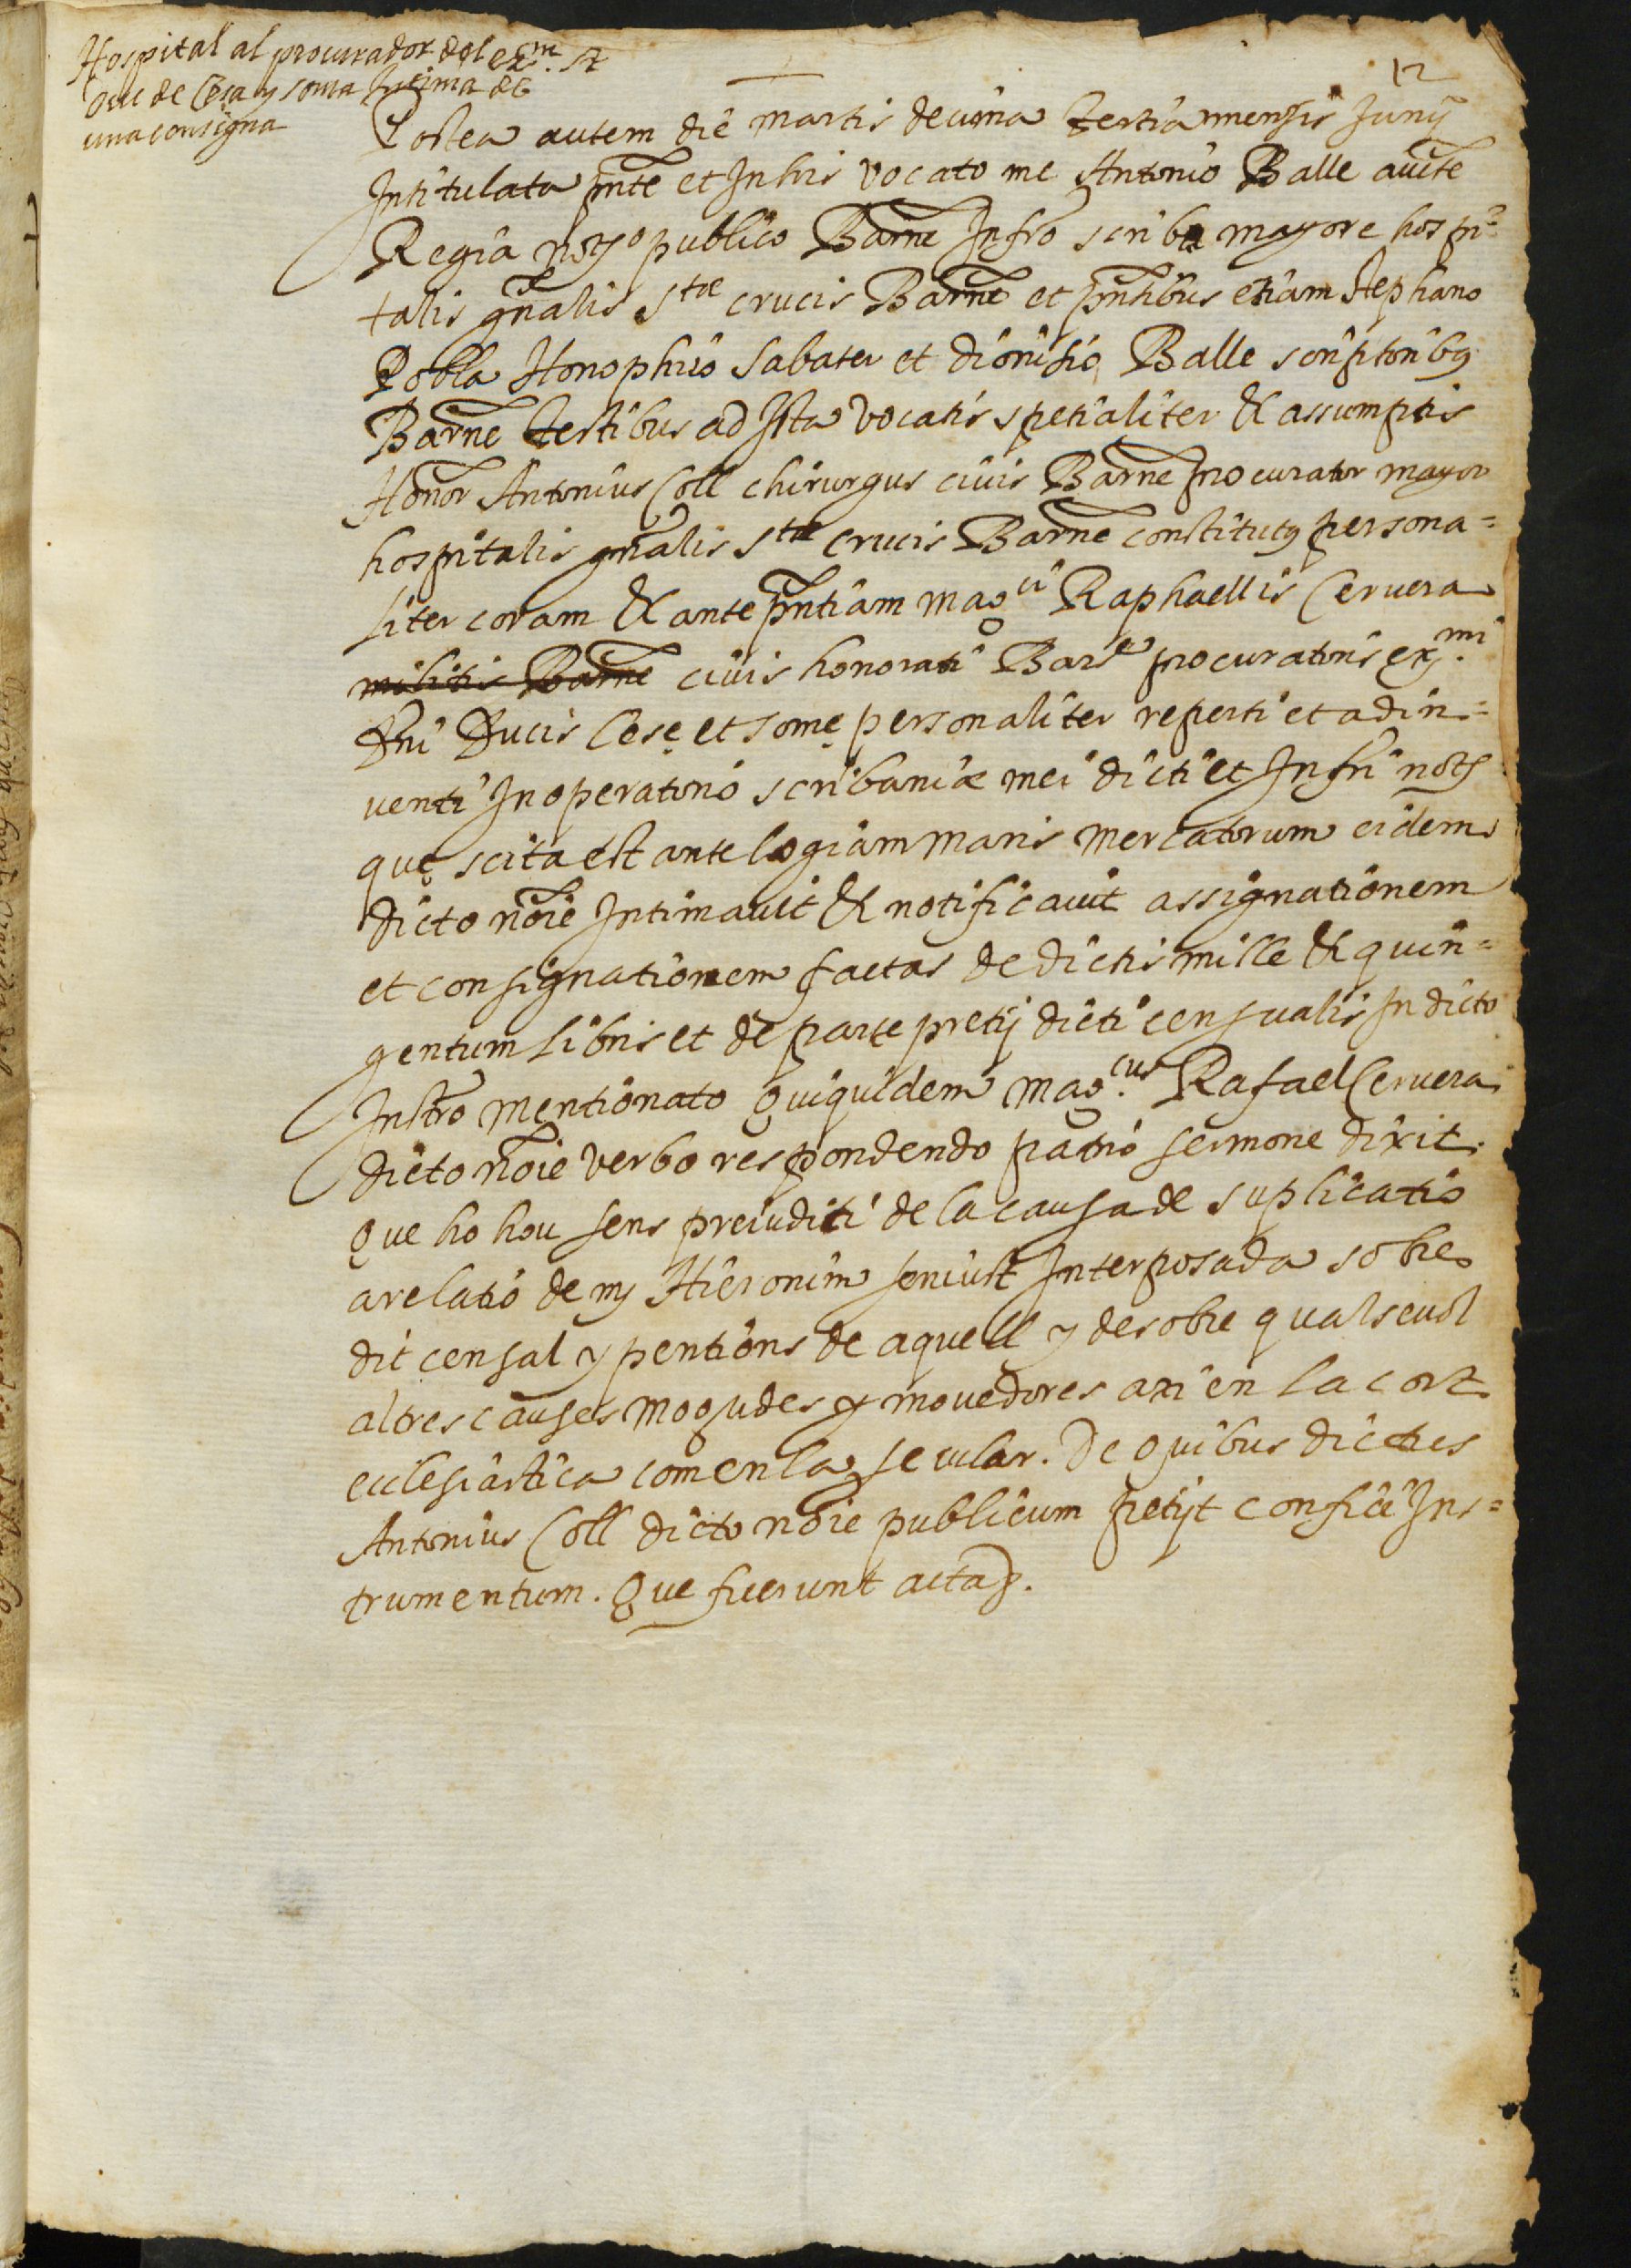 Hospital al procurador del ex.m sr
Duc de Cesa y soma Intima de
una consigna
12
Postea autem die martis decima tertia mensis Junij
Intitulata pnte et Instis vocato me Antonio Balle aucte
Regia noto publico Barne Infro scriba mayore hospi=
talis gnalis Stæ crucis Barne et pntibus etiam stephano
Pobla Honophrio Sabater et dionisio Balle scriptoribus
Barne testibus ad Ista vocatis spetialiter & assumptis
Honor Antonius Coll chirurgus ciuis Barne procurator mayor
hospitalis gnalis Stæ crucis Barne constitutus persona=
liter coram & ante pntiam mag.ci Raphaellis Ceruera
militis Barne ciuis honorati Barne procuratoris ex.mi
Dni Ducis Cesę et somę personaliter reperti et adin=
uenti In operatorio scribaniæ mei dicti et Infri notÿ
quę scita est ante logiam maris mercatorum eidem
dicto noie Intimauit & notificauit assignationem
et consignationem factas de dictis mille & quin=
gentum libris et de parte pretij dicti censualis In dicto
Instro mentionato quiquidem mag.cus Rafael Ceruera
dicto noie verbo respondendo patrio sermone dixit
Que ho hou sens preiuditi de la causa de suplicatio
a relatio de mÿ Hieronim seniust Interposada sobre
dit censal y pentions de aquell y de sobre qualseuol
altres causes mogudes y mouedores axi en la cort
ecclesiastica com en la secular. De quibus dictus
Antonius Coll dicto noie publicum petijt confici Ins=
trumentum. Que fuerunt acta &.